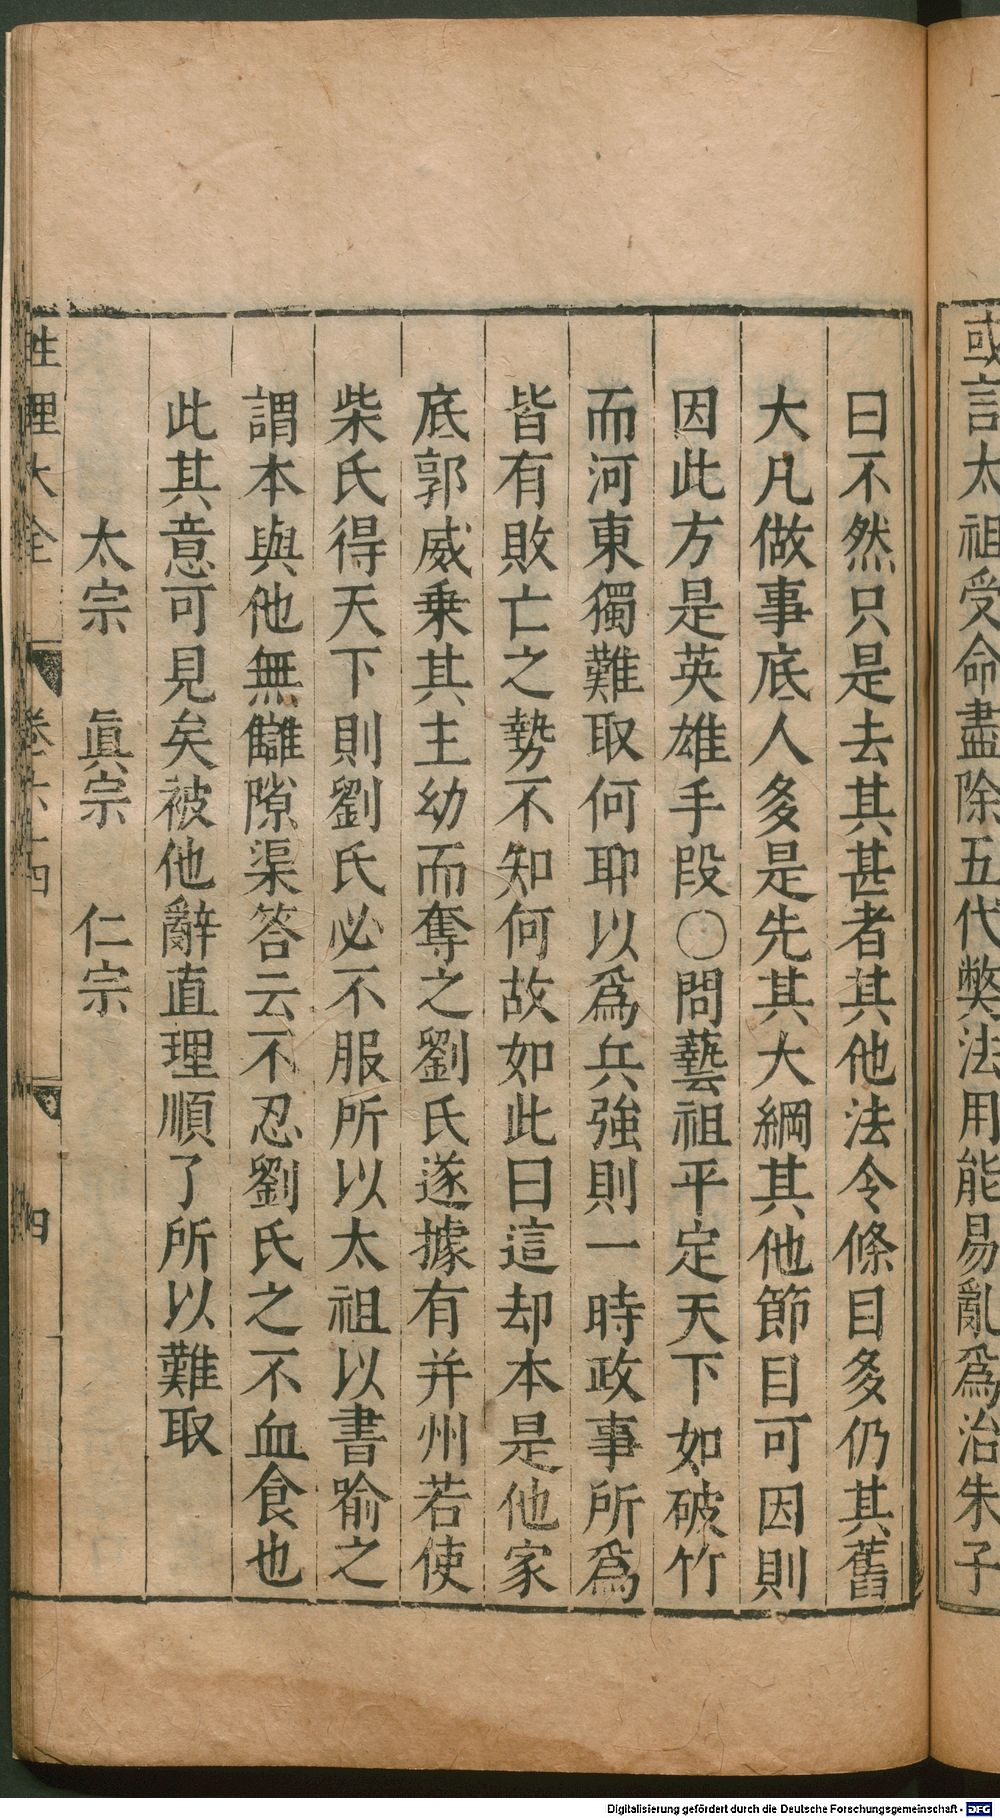 或言太祖受命盡除五代弊法用能易亂爲治朱子
曰不然只是去其甚者其他法令條目多仍其舊
大凡做事底人多是先其大綱其他節目可因則
因此方是英雄手段○問藝祖平定天下如破竹
而河東獨難取何耶以爲兵強則一時政事所爲
皆有敗亡之勢不知何故如此曰這却本是他家
底郭威乗其主幼而奪之劉氏遂據有并州若使
柴氏得天下則劉氏必不服所以太祖以書喻之
謂本與他無讎隙渠答云不忍劉氏之不血食也
此其意可見矣被他辭直理順了所以難取
太宗 眞宗 仁宗
性理大全 卷六十四 四
Digitalisierung gefördert durch die Deutsche Forschungsgemeinschaft - DFG